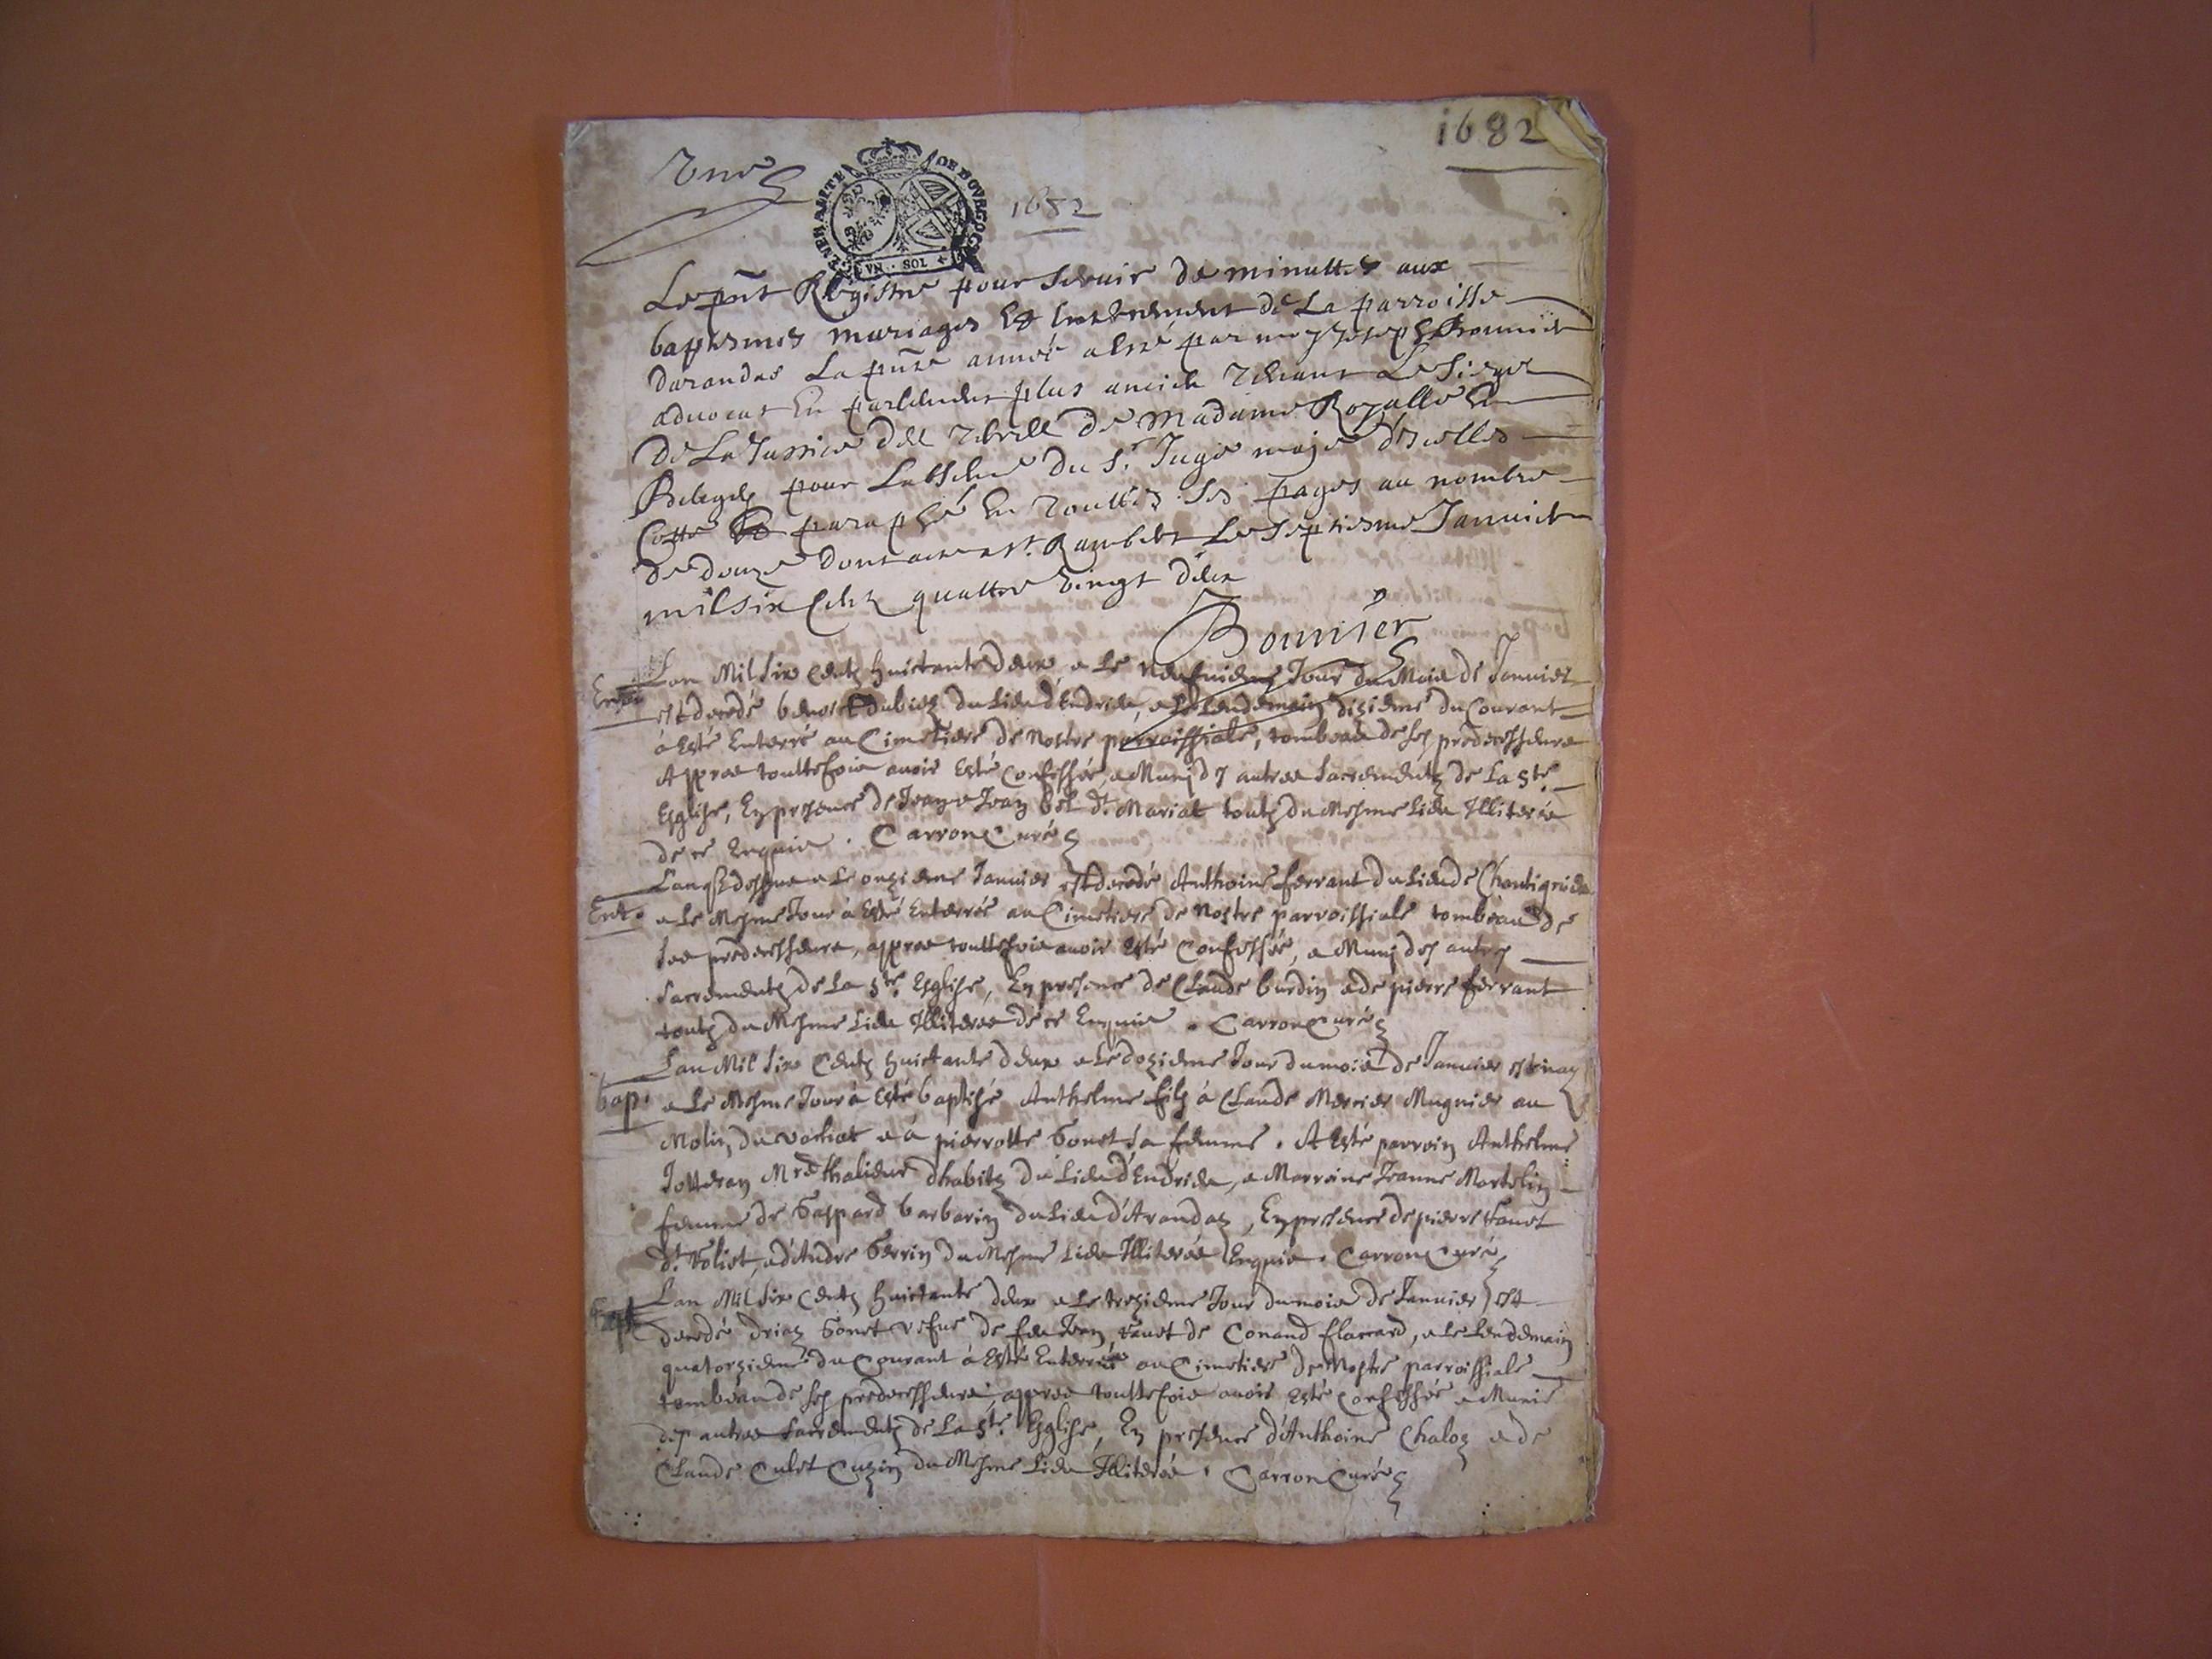 1682
Une
GENERALITE DE BOVRGOG
VN · SOL
1682
Le pnt Registre pour servir de minuttes aux
baptesmes mariages Et Enterrement de La parroisse
darandas La pnte année a esté par moy Joseph Bonnier
advocat En parlement plus ancien tenant Le siege
De La Justice de madame Royalle
pour Labsence du Sr. Juge maje d'icelles
Cotté Et paraphé En touttes ses pages au nombre
de douze dont acte a st. Rambert Le septiesme Janvier
mil six Cent quattre vingt deux
Bonnier
Lan Mil six Centz huictante deux e Le neufuieme Jour du Mois de Januier
Ent. est decedé benoit Dubiez du Lieu d'Endrieu, e Le Lendemain dizieme du Courant
à Esté Enterré au Cimetiere de Nostre parroissiale, tombeau de ses predecesseurs
Appres touttefois auoir Esté Confessée, e Munj des autres Sacrementz de La Ste.
Esglise, En presence de Jean dt. Mariat toutz du Mesme Lieu Illiterés
de ce Enquis. Carron Curé
Lan q Sedessus e Le onzieme Januier est decedé Anthoine ferrant du Lieu de Chantigrieu
Ent. e Le Mesme Jour à Esté Enterrée au Cimetiere de Nostre parroissiale tombeau de
ses predecesseurs, appres touttefois auoir Esté Confessée, e Munj des autres
Sacrementz de La Ste. Esglise, En presence de Claude burdin e de pierre ferrant
toutz du Mesme Lieu Illiteres de ce Enquis. Carron Curé
Lan Mil six Centz huictante deux e Le dozieme Jour du mois de Januier est nay
bap. e Le Mesme Jour à Esté baptisé Anthelme filz à Claude Mercier Mugnier au
Molin du vachat e à pierrotte Gonet sa femme. A Esté parroin Anthelme
Jotteran Mre thalieur dhabitz du Lieu d'Endrieu, e Marroine Jeanne Martelin
femme de Gaspard barbarin du Lieu d'Arandaz, En presence de pierre
dt. e d'Andre Perrin du Mesme Lieu Illiterés Enquis. Carron Curé
Lan Mil six Centz huictante deux e Le trezieme Jour du mois de Januier est
decedé Gonet vefue de feu Jean de Conand flaccard, e Le Lendemain
quatorzieme du Courant à Esté Enterrée au Cimetiere de Nostre parroissiale
tombeau de ses predecesseurs, appres touttefois auoir Esté Confessée e Munie
des autres Sacrementz de La Ste. Esglise, En presence d'Anthoine Chaloz e de
Claude Culet Cuzin du Mesme Lieu Illiterés. Carron Curé